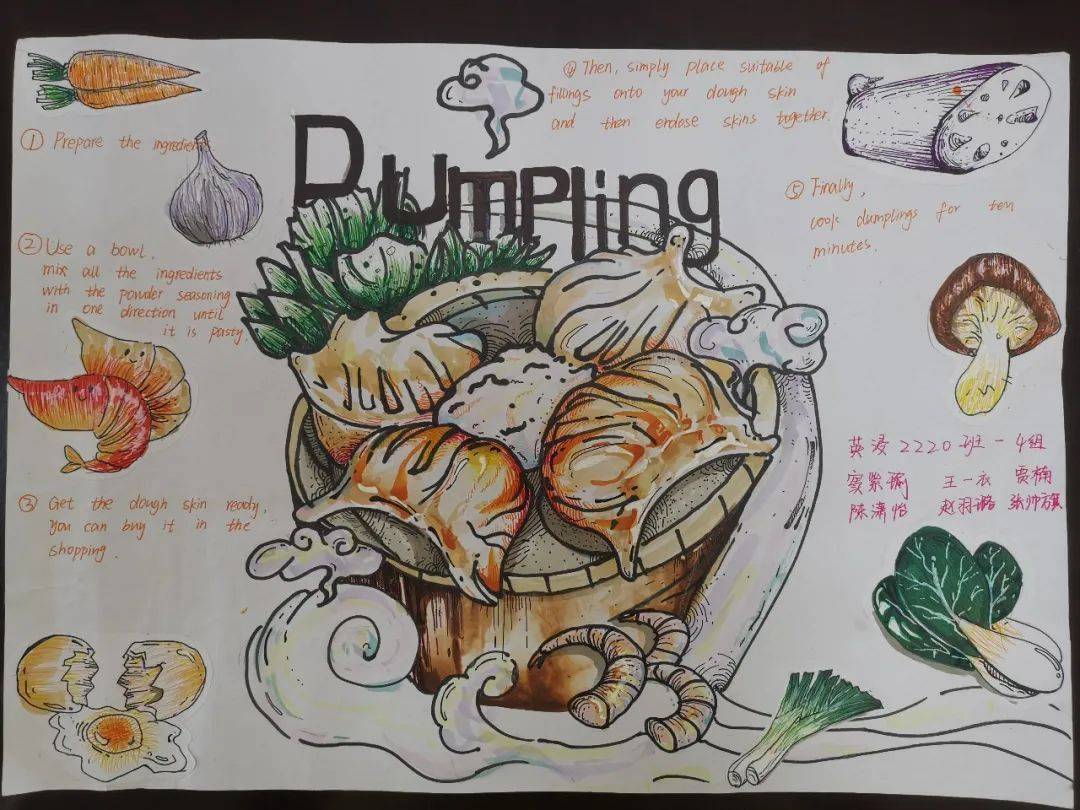 Dumpling
① Prepare the ingredients
② Use a bowl,
mix all the ingredients
with the powder seasoning
in one direction until
it is pasty.
③ Get the dough skin ready,
you can buy it in the
shopping.
④ Then, simply place suitable of
fillings onto your dough skin
and then endose skins together.
⑤ Finally,
cook dumplings for ten
minutes.
英浸2220班-4组
王一衣 贾楠
陈潇怡 赵羽潞 张帅旗